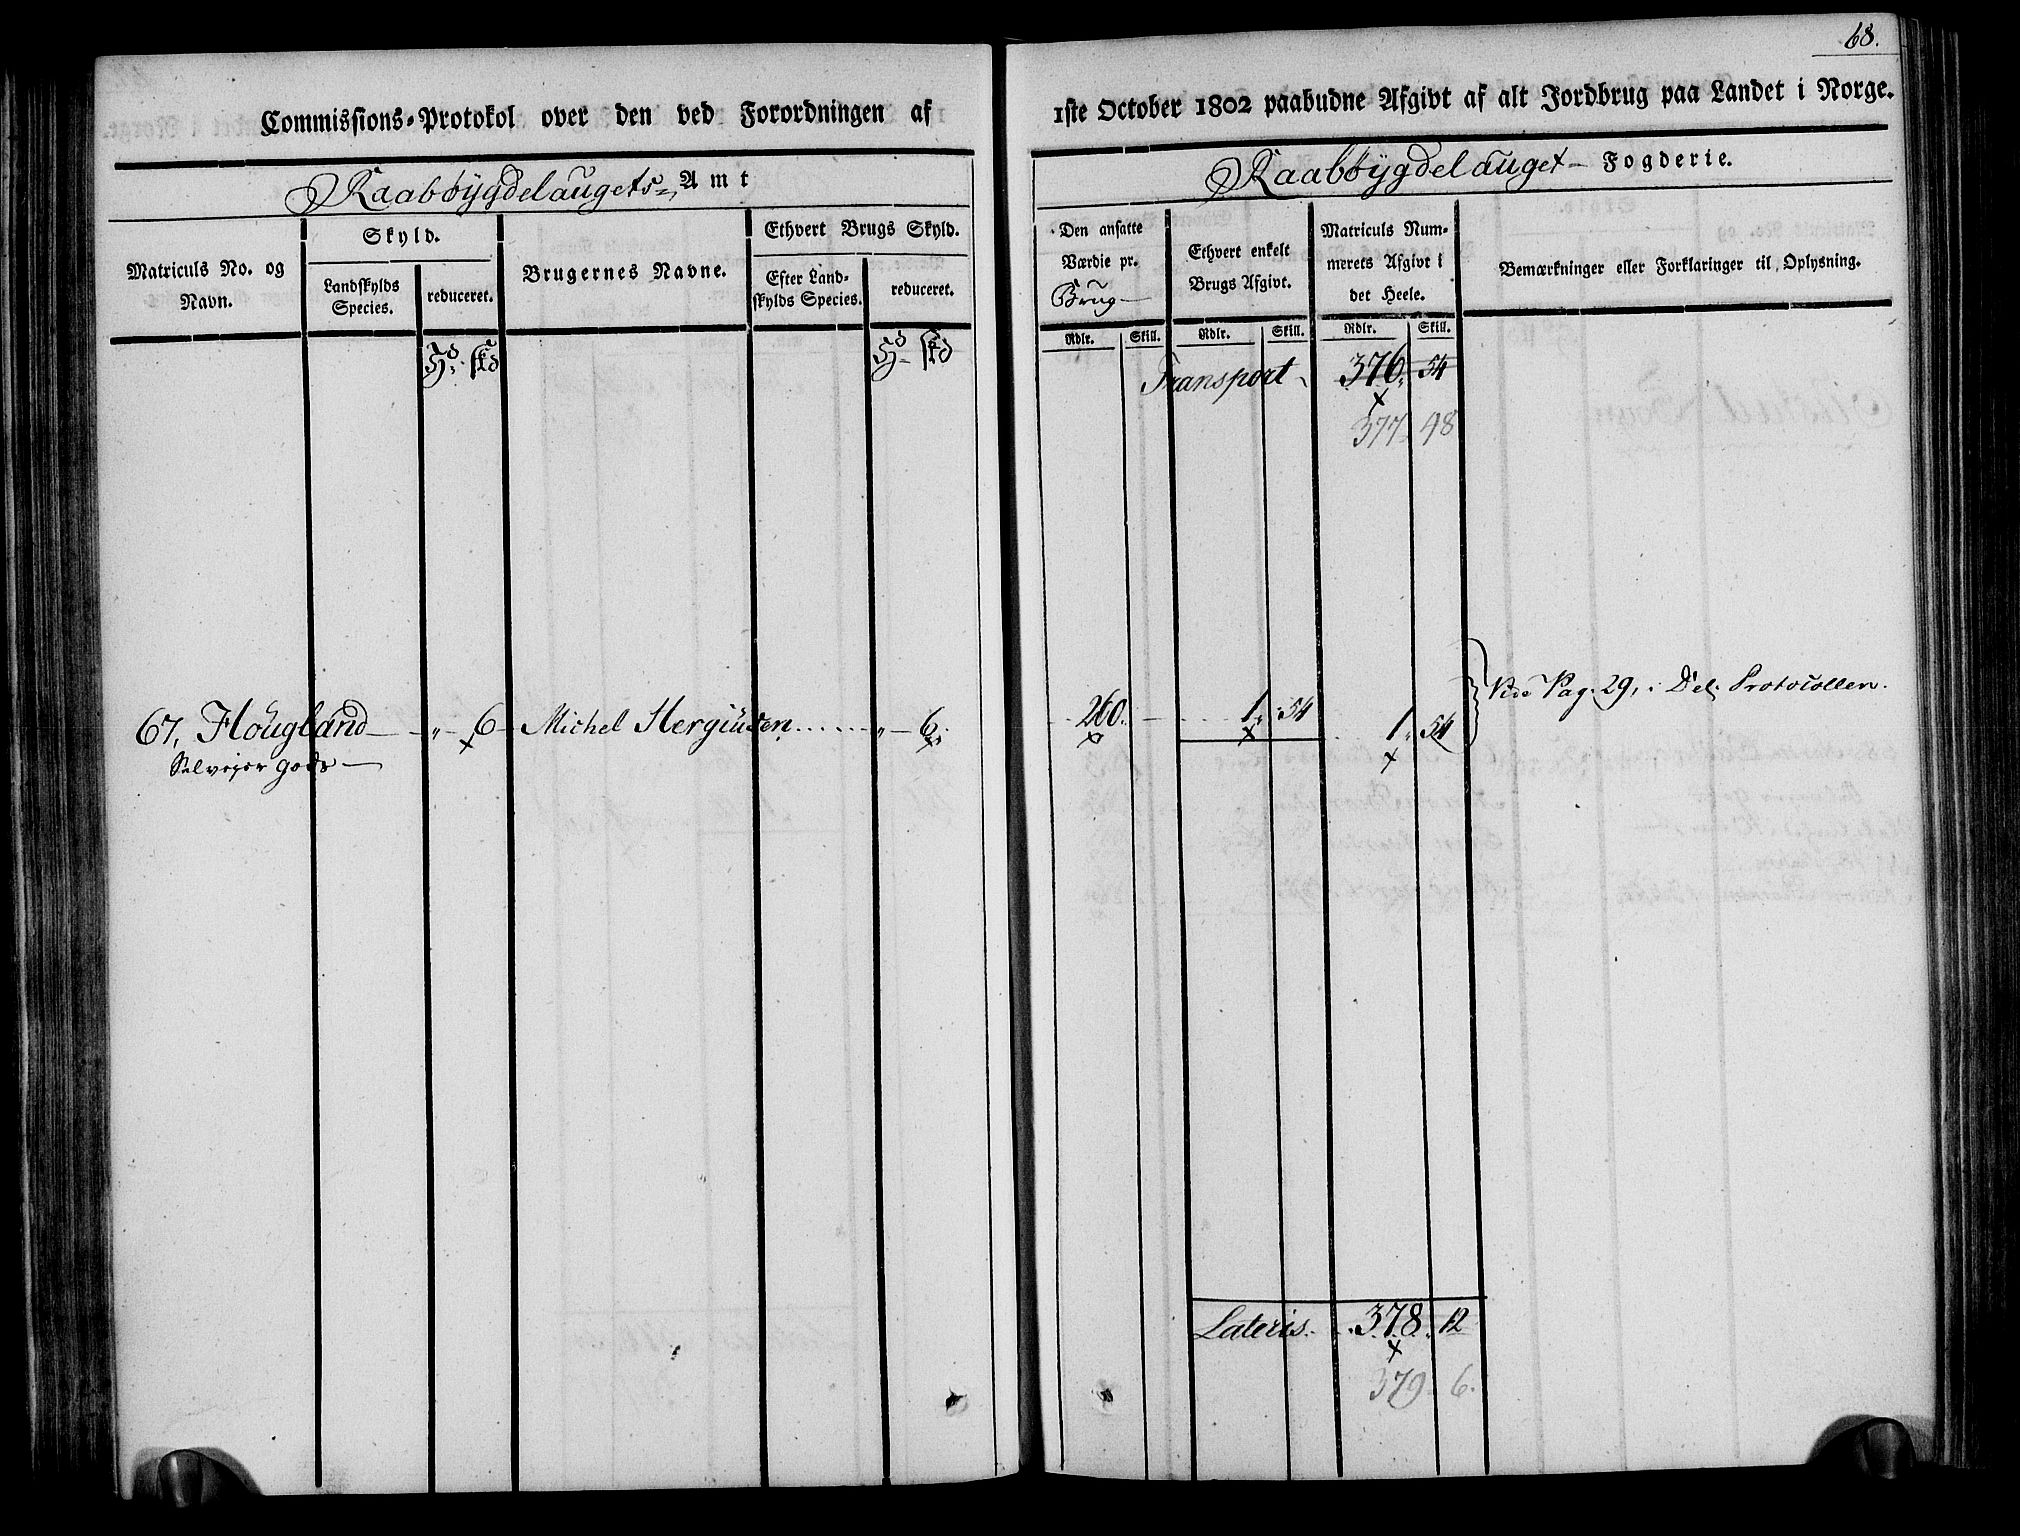 68.
Commissions-Protokol over den ved Forordningen af 1ste October 1802 paabudne Afgivt af alt Jordbrug paa Landet i Norge.
Raabøygdelaugets Amt
Raabøygdelauget Fogderie.
Matriculs No. og Navn.
Skyld.
Landskylds Species.
reduceret.
Brugernes Navne.
Ethvert Brugs Skyld.
Efter Landskylds Species.
reduceret.
Den ansatte Værdie pr. Brug
Ethvert enkelt Brugs Afgivt.
Matriculs Nummerets Afgivt i det Heele.
Bemærkninger eller Forklaringer til Oplysning.
Rdlr. Skill. Rdlr. Skill. Rdlr. Skill.
Transport 376. 54
377. 48
67, Hougland — „ — 6 — Michel Hergiusen ...... „ — 6. 260. 1. 54 1. 54 Vide Pag. 29, i Del. Protocollen.
Selvejer gods —
Lateris. 378. 12
379. 6.